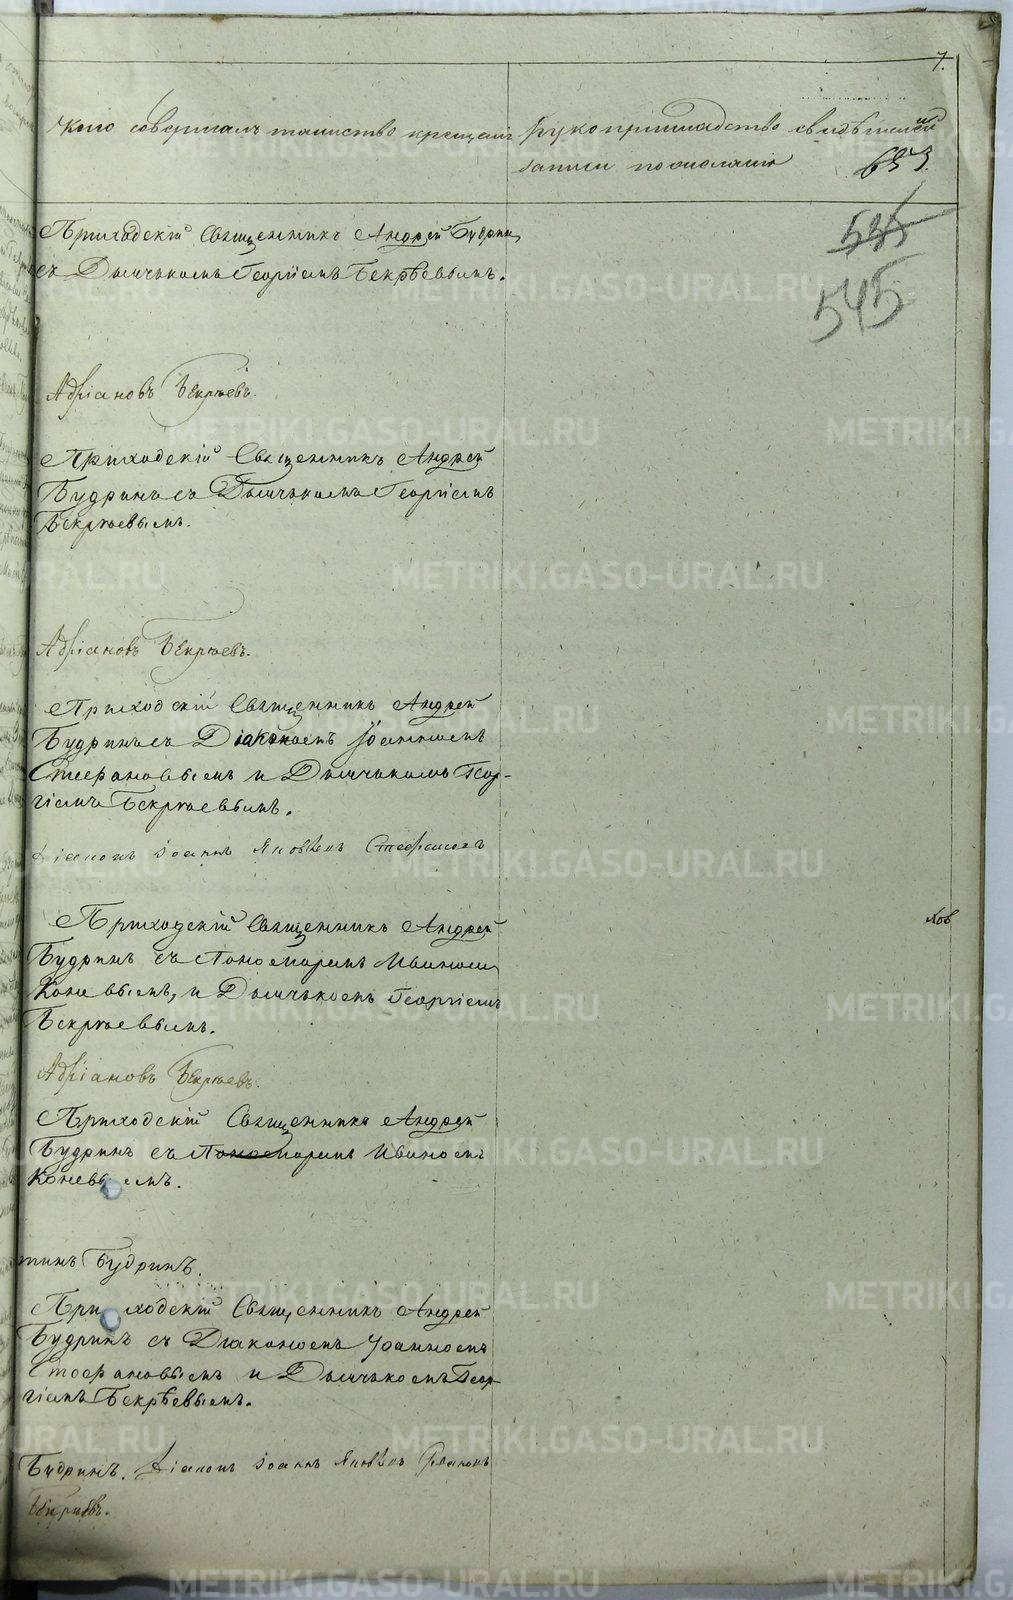 7.
Кто совершалъ таинство крещенія
Рукоприкладство свидѣтелей
записи по желанію
653.
545
545
Приходскій Священникъ Андрей Будринъ
съ Дьячькомъ Георгіемъ Бекрѣевымъ.
Адріановъ Бекрѣевъ.
Приходскій Священникъ Андрей
Будринъ съ Дьячькомъ Георгіемъ
Бекрѣевымъ.
Адріановъ Бекрѣевъ.
Приходскій Священникъ Андрей
Будринъ съ Діакономъ Іоанномъ
Стефановымъ и Дьячькомъ Геор-
гіемъ Бекрѣевымъ.
Діаконъ Іоаннъ Яковлевъ Стефановъ
Приходскій Священникъ Андрей
Будринъ съ Пономаремъ Иваномъ
Коневымъ, и Дьячькомъ Георгіемъ
Бекрѣевымъ.
Адріановъ Бекрѣевъ.
Приходскій Священникъ Андрей
Будринъ съ Пономаремъ Иваномъ
Коневымъ.
тинъ Будринъ.
Приходскій Священникъ Андрей
Будринъ съ Діакономъ Іоанномъ
Стефановымъ и Дьячькомъ Геор-
гіемъ Бекрѣевымъ.
Будринъ. Діаконъ Іоаннъ Яковлевъ
METRIKI.GASO-URAL.RU